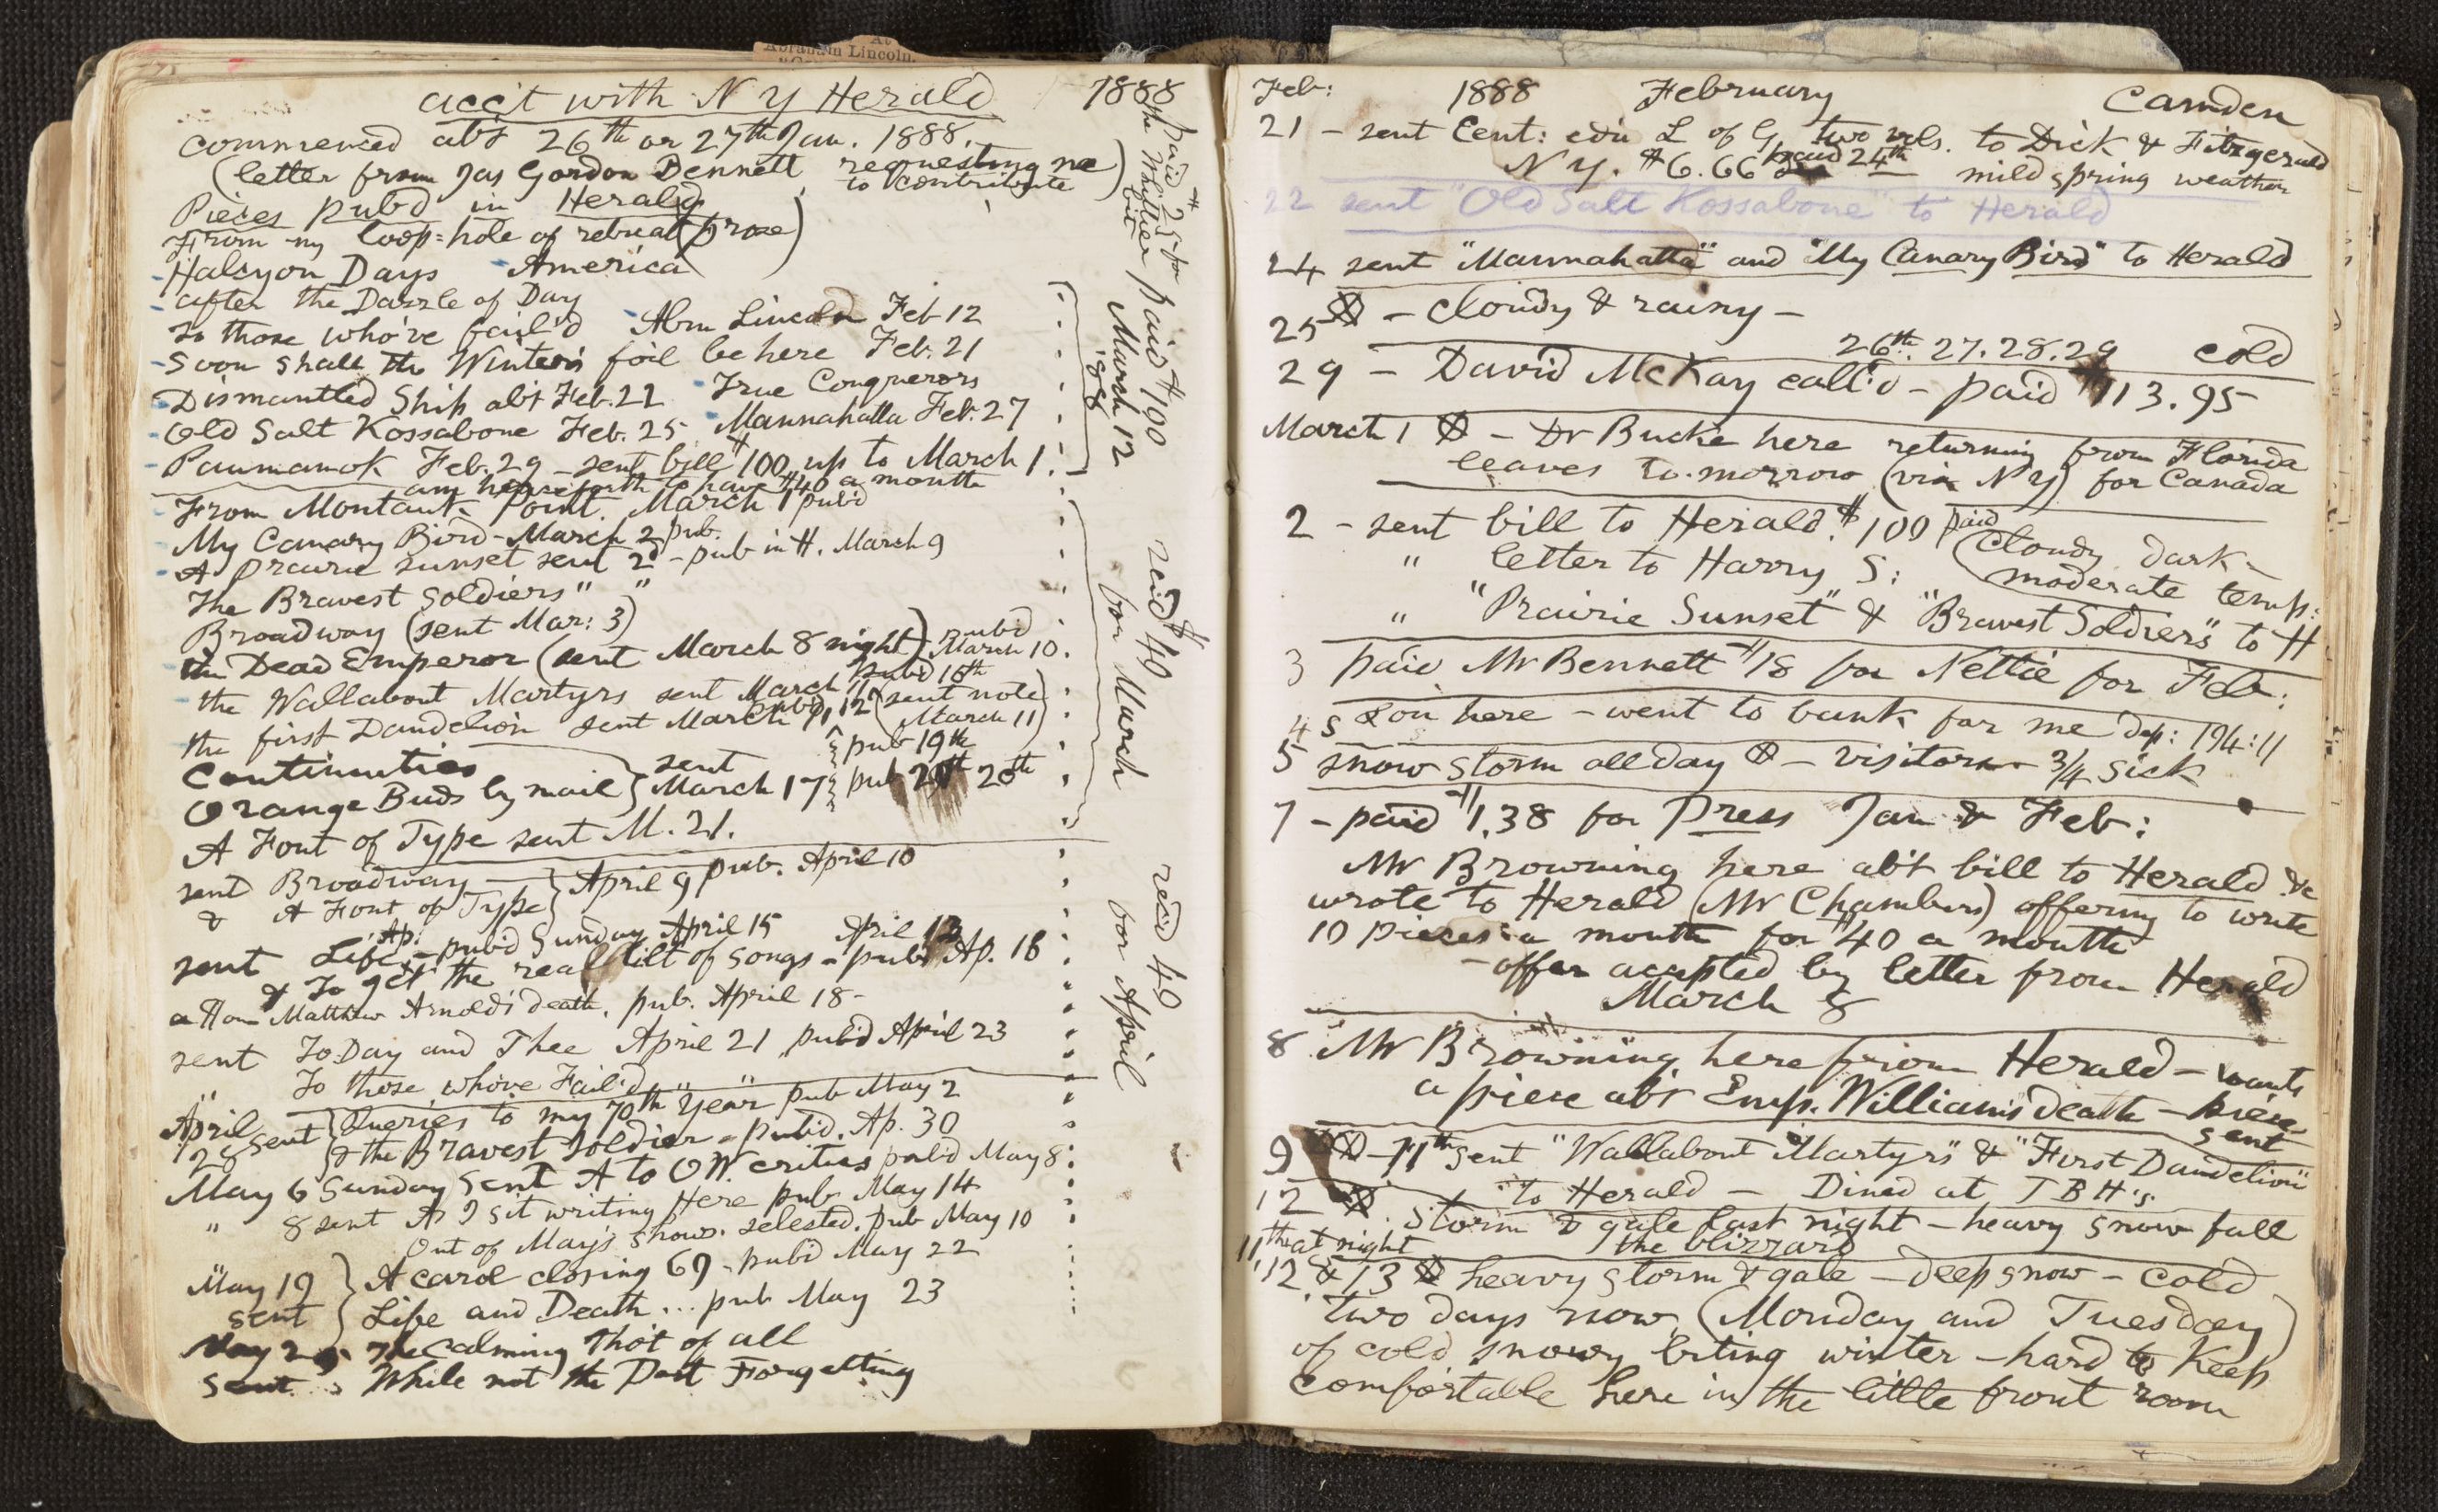 At
Abraham Lincoln.
acc't with N Y Herald 1888
commenced abt 26th or 27th Jan. 1888.
(letter from Jas Gordon Bennett requesting me
to contribute)
Pieces pub'd in Herald
From my loop=hole of retreat (prose)
-Halcyon Days -America
-after the Dazzle of Day
-To those who've fail'd -Abm Lincoln Feb 12
-Soon shall the Winter's foil be here Feb. 21
-Dismantled Ship abt Feb. 22 -True Conquerors
-Old Salt Kossabone Feb. 25 -Mannahatta Feb. 27
-Paumanok Feb. 29 - sent bill $100 up to March 1. -
am henceforth to have $40 a month
From Montauk Point March 1 pub'd
My Canary Bird - March 2 pub.
A prairie sunset sent 2d - pub in H. March 9
The Bravest Soldiers " "
Broadway (sent Mar: 3)
the Dead Emperor (sent March 8 night) pub'd March 10.
the Wallabout Martyrs sent March 11 pub'd 16th
the first Dandelion sent March 11 pub'd 12 (sent note March 11)
Continuities } sent } pub 19th
Orange Buds by mail } March 17 } pub 20th
A Font of Type sent M. 21.
sent Broadway } April 9 pub. April 10
& A Font of Type
sent Life Ap: - pub'd Sunday April 15 April 12
& To get the real lilt of songs - pub'd Ap. 16
a H on Matthew Arnold's death, pub. April 18 -
sent To Day and Thee April 21 pub'd April 23
" To those who've Fail'd " "
April 28 sent { Queries to my 70th Year pub May 2
& the Bravest Soldier - pub'd. Ap. 30
May 6 Sunday sent A to O W. critics pub'd May 8
" 8 sent As I sit writing Here pub. May 14
Out of May's shows selected. pub May 10
May 19 } A carol closing 69 - pub'd May 22
sent } Life and Death ... pub May 23
May 25 The Calming Tho't of all
sent While not the Past Forgetting
paid $25 for
the Whittier
bit
paid $100
March 12
'88
rec'd $40
for March
rec'd 40
for April
Feb: 1888 February Camden
21 - sent Cent: edn L of G two vols. to Dick & Fitzgerald
N Y. $6.66 paid 24th mild spring weather
22 sent "Old Salt Kossabone" to Herald
24 sent "Mannahatta" and "My Canary Bird" to Herald
25 - cloudy & rainy -
26th. 27. 28. 29 cold
29 - David McKay call'd - paid $113.95
March 1 - Dr Bucke here returning from Florida
leaves to-morrow (via N Y) for Canada
2 - sent bill to Herald $100 paid (cloudy dark -
" letter to Harry S: moderate temp:
" "Prairie Sunset" & "Bravest Soldiers" to H
3 paid Mr Bennett $18 for Nettie for Feb:
4 S Lou here - went to bank for me dep: 194:11
5 snow storm all day - visitors - 3/4 sick
7 - paid $1.38 for Press Jan & Feb:
Mr Browning here ab't bill to Herald &c
wrote to Herald (Mr Chambers) offering to write
10 pieces a month for $40 a month
- offer accepted by letter from Herald
March 8
8 Mr Browning here from Herald - wants
a piece abt Emp. William's death - piece
sent
9 - 11th sent "Wallabout Martyrs" & "First Dandelion"
to Herald - Dined at T B H's.
12 storm & gale last night - heavy snow fall
11th at night the blizzard
12 & 13 heavy storm & gale - deep snow - cold
two days now (Monday and Tuesday)
of cold snowy biting winter - hard to keep
comfortable here in the little front room